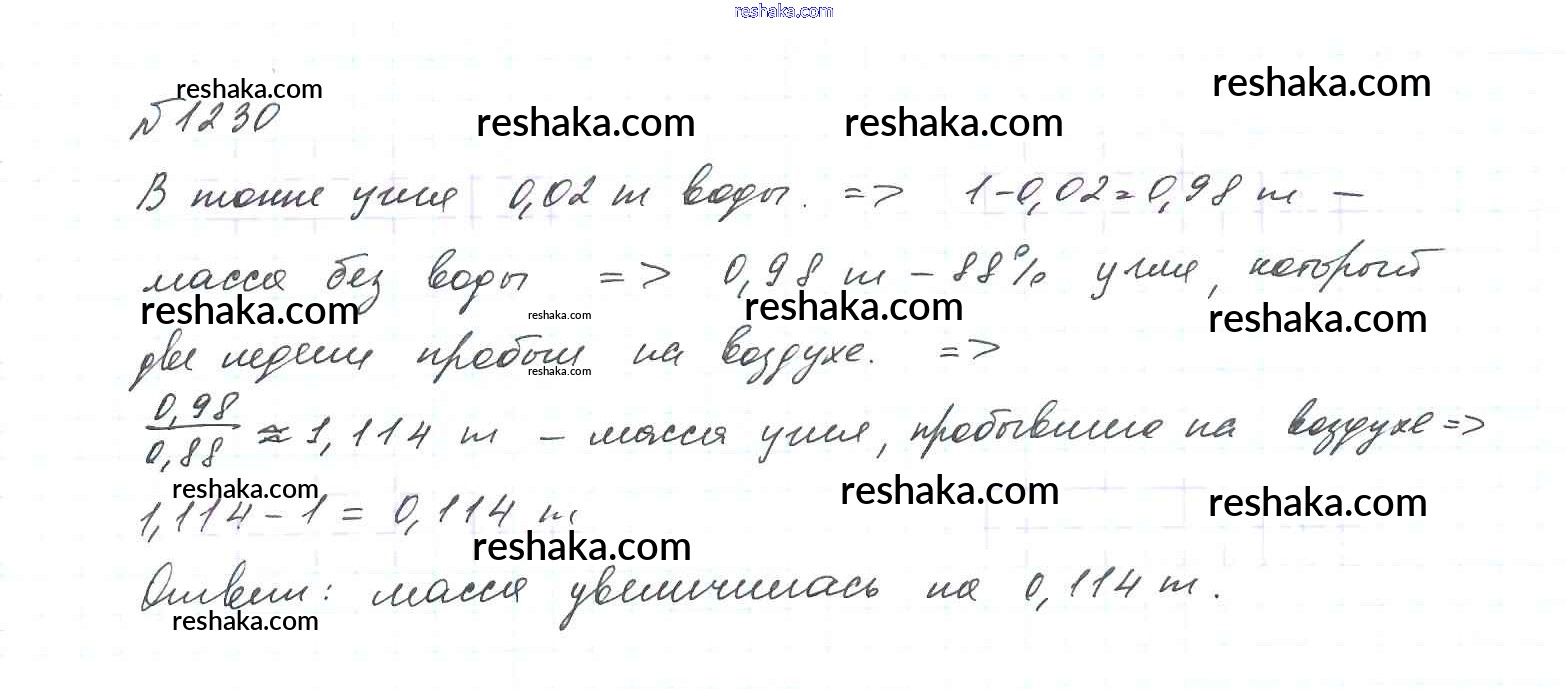 reshaka.com
reshaka.com reshaka.com
№ 1230 reshaka.com reshaka.com
В тонне угля 0,02 т воды. => 1-0,02=0,98 т –
масса без воды => 0,98 т – 88% угля, который
reshaka.com reshaka.com reshaka.com reshaka.com
две недели пробыл на воздухе. =>
reshaka.com
0,98/0,88 ≈ 1,114 т – масса угля, пробывшего на воздухе =>
reshaka.com reshaka.com reshaka.com
1,114 – 1 = 0,114 т
reshaka.com
Ответ: масса увеличилась на 0,114 т.
reshaka.com